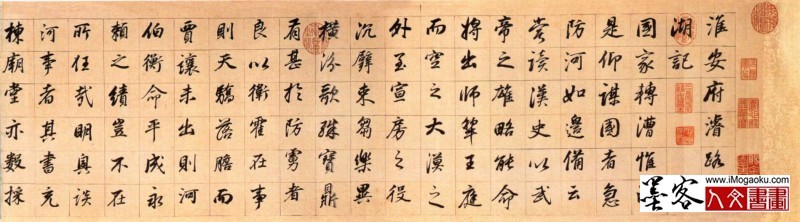 淮安府濬路
湖記
國家轉漕惟
是仰謀國者急
防河如邊備云
嘗讀漢史以武
帝之雄略能命
將出師犂王庭
而空之大漠之
外至宣房之役
沉璧束芻樂異
橫汾歌殊寶鼎
有甚於防虜者
良以衛霍在事
則天驕落膽而
賈讓未出則河
伯衡命平成永
賴之績豈不在
所任哉明興談
河事者其書充
棟廟堂亦數採
墨客
www.iMogaoku.com
人文書畫